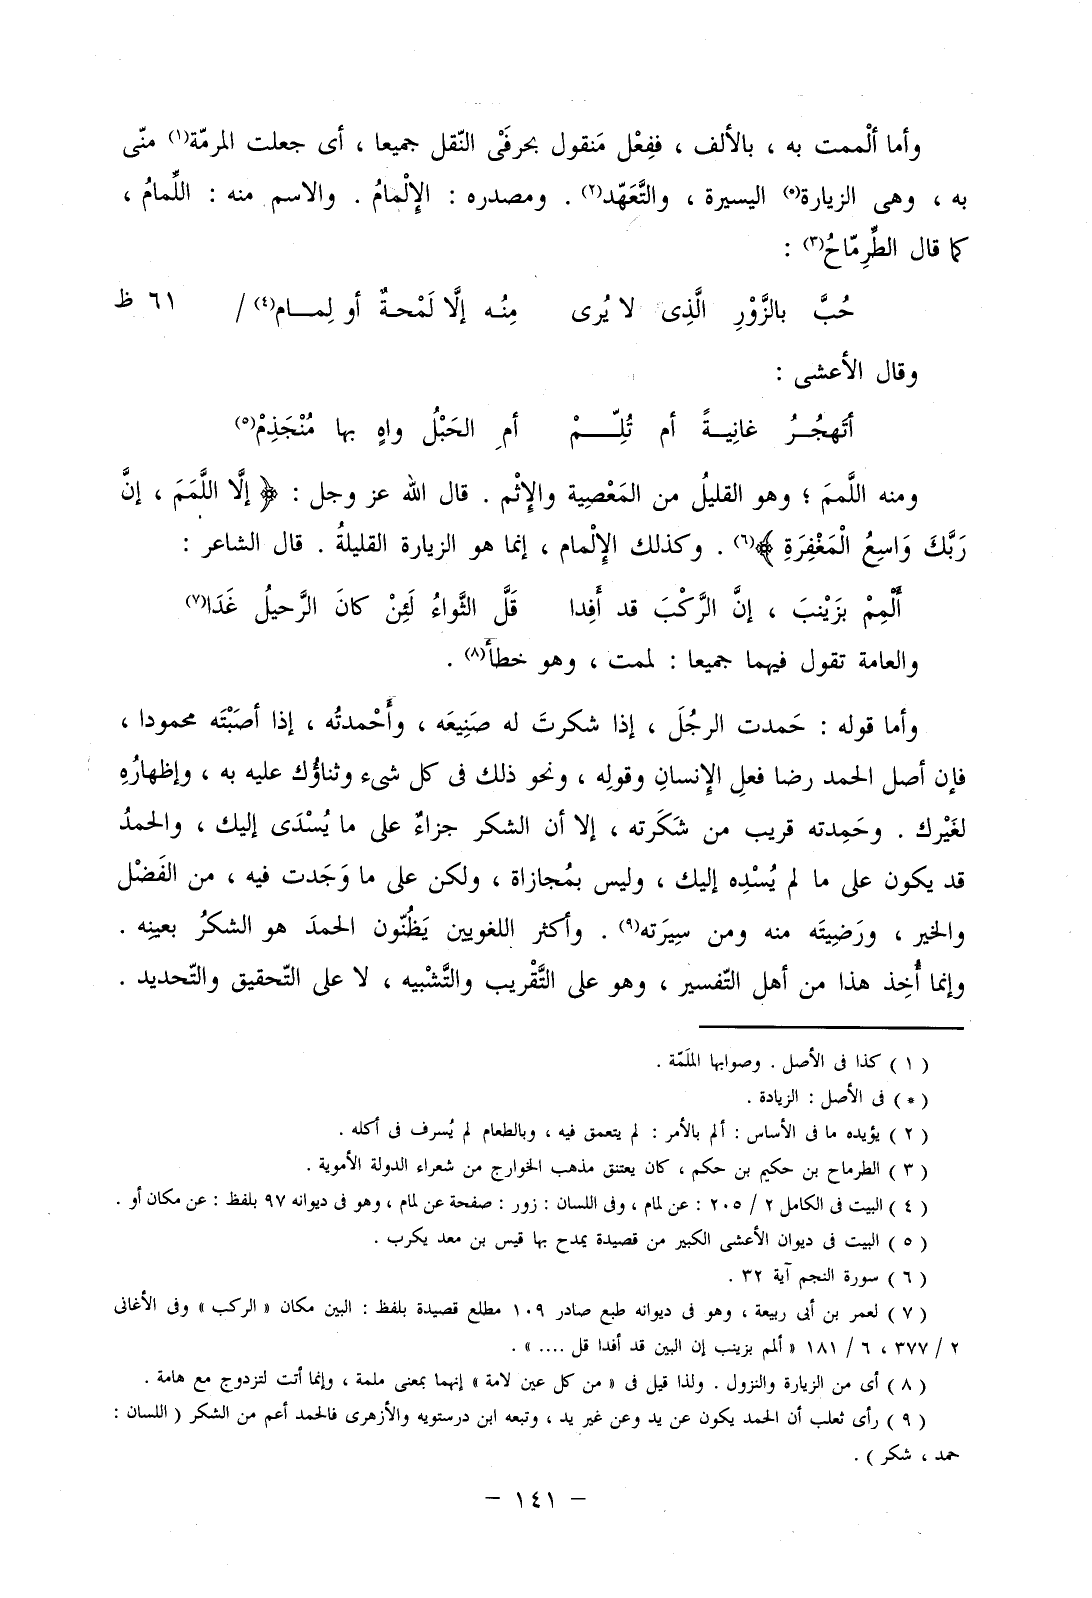 وأما ألْممت به ، بالألف ، ففِعْل مَنقول بحرفَىْ النّقل جميعا ، أى جعلت المرمّة(١) منّى
به ، وهى الزيارة(*) اليسيرة ، والتَّعَهّد(٢) . ومصدره : الإِلْمامُ . والاسم منه : اللِّمامُ ،
كما قال الطِّرِمّاحُ(٣) :
حُبَّ بالزَّوْرِ الَّذِى لا يُرى مِنُه إلَّا لَمْحةٌ أو لِمام(٤)/ ٦١ ظ
وقال الأعشى :
أتَهجُرُ غانِيةً أم تُلِمّْ أمِ الحَبْلُ واهٍ بها مُنْجَذِمْ(٥)
ومنه اللَّممَ ؛ وهو القليلُ من المَعْصِية والإِثْم . قال الله عز وجل : ﴿ إلَّا اللَّمَمَ ، إنَّ
رَبَّكَ وَاسِعُ الْمَغْفِرَةِ ﴾(٦) . وكذلك الإِلْمام ، إنما هو الزيارة القليلةُ . قال الشاعر :
أَلْمِمْ بزَيْنبَ ، إنَّ الرَّكْبَ قد أَفِدا قَلَّ الثَّواءُ لَئِنْ كانَ الرَّحيلُ غَدَا(٧)
والعامة تقول فيهما جميعا : لممت ، وهو خطأ(٨) .
وأما قوله : حَمدت الرجُلَ ، إذا شكرتَ له صَنِيعَه ، وأَحْمدتُه ، إذا أصَبْتَه محمودا ،
فإن أصل الحمد رضا فعلِ الإِنسانِ وقولِه ، ونحو ذلك فى كل شىء وثناؤُك عليه به ، وإظهارُهِ
لغَيْرك . وحَمِدته قريب من شَكَرته ، إلا أن الشكر جزاءٌ على ما يُسْدَى إليك ، والحمدُ
قد يكون على ما لم يُسْدِه إليك ، وليس بمُجازاة ، ولكن على ما وَجَدت فيه ، من الفَضْل
والخير ، ورَضِيتَه منه ومن سِيرَته(٩) . وأكثر اللغويين يَظُنّون الحمدَ هو الشكرُ بعينِه .
وإنما أُخِذ هذا من أهل التّفسير ، وهو على التَّقْريب والتَّشْبيه ، لا على التّحقيق والتّحديد .
( ١ ) كذا فى الأصل . وصوابها الملَمّة .
( * ) فى الأصل : الزيادة .
( ٢ ) يؤيده ما فى الأساس : ألم بالأمر : لم يتعمق فيه ، وبالطعام لم يُسرف فى أكله .
( ٣ ) الطرماح بن حكيم بن حكم ، كان يعتنق مذهب الخوارج من شعراء الدولة الأموية .
( ٤ ) البيت فى الكامل ٢ / ٢٠٥ : عن لمام ، وفى اللسان : زور : صفحة عن لمام ، وهو فى ديوانه ٩٧ بلفظ : عن مكان أو .
( ٥ ) البيت فى ديوان الأعشى الكبير من قصيدة يمدح بها قيس بن معد يكرب .
( ٦ ) سورة النجم آية ٣٢ .
( ٧ ) لعمر بن أبى ربيعة ، وهو فى ديوانه طبع صادر ١٠٩ مطلع قصيدة بلفظ : البين مكان « الركب » وفى الأغانى
٢ / ٣٧٧ ، ٦ / ١٨١ « ألمم بزينب إن البين قد أفدا قل .... » .
( ٨ ) أى من الزيارة والنزول . ولذا قيل فى « من كل عين لامة » إنهما بمعنى ملمة ، وإنما أتت لتزدوج مع هامة .
( ٩ ) رأى ثعلب أن الحمد يكون عن يد وعن غير يد ، وتبعه ابن درستويه والأزهرى فالحمد أعم من الشكر ( اللسان :
حمد ، شكر ) .
– ١٤١ –